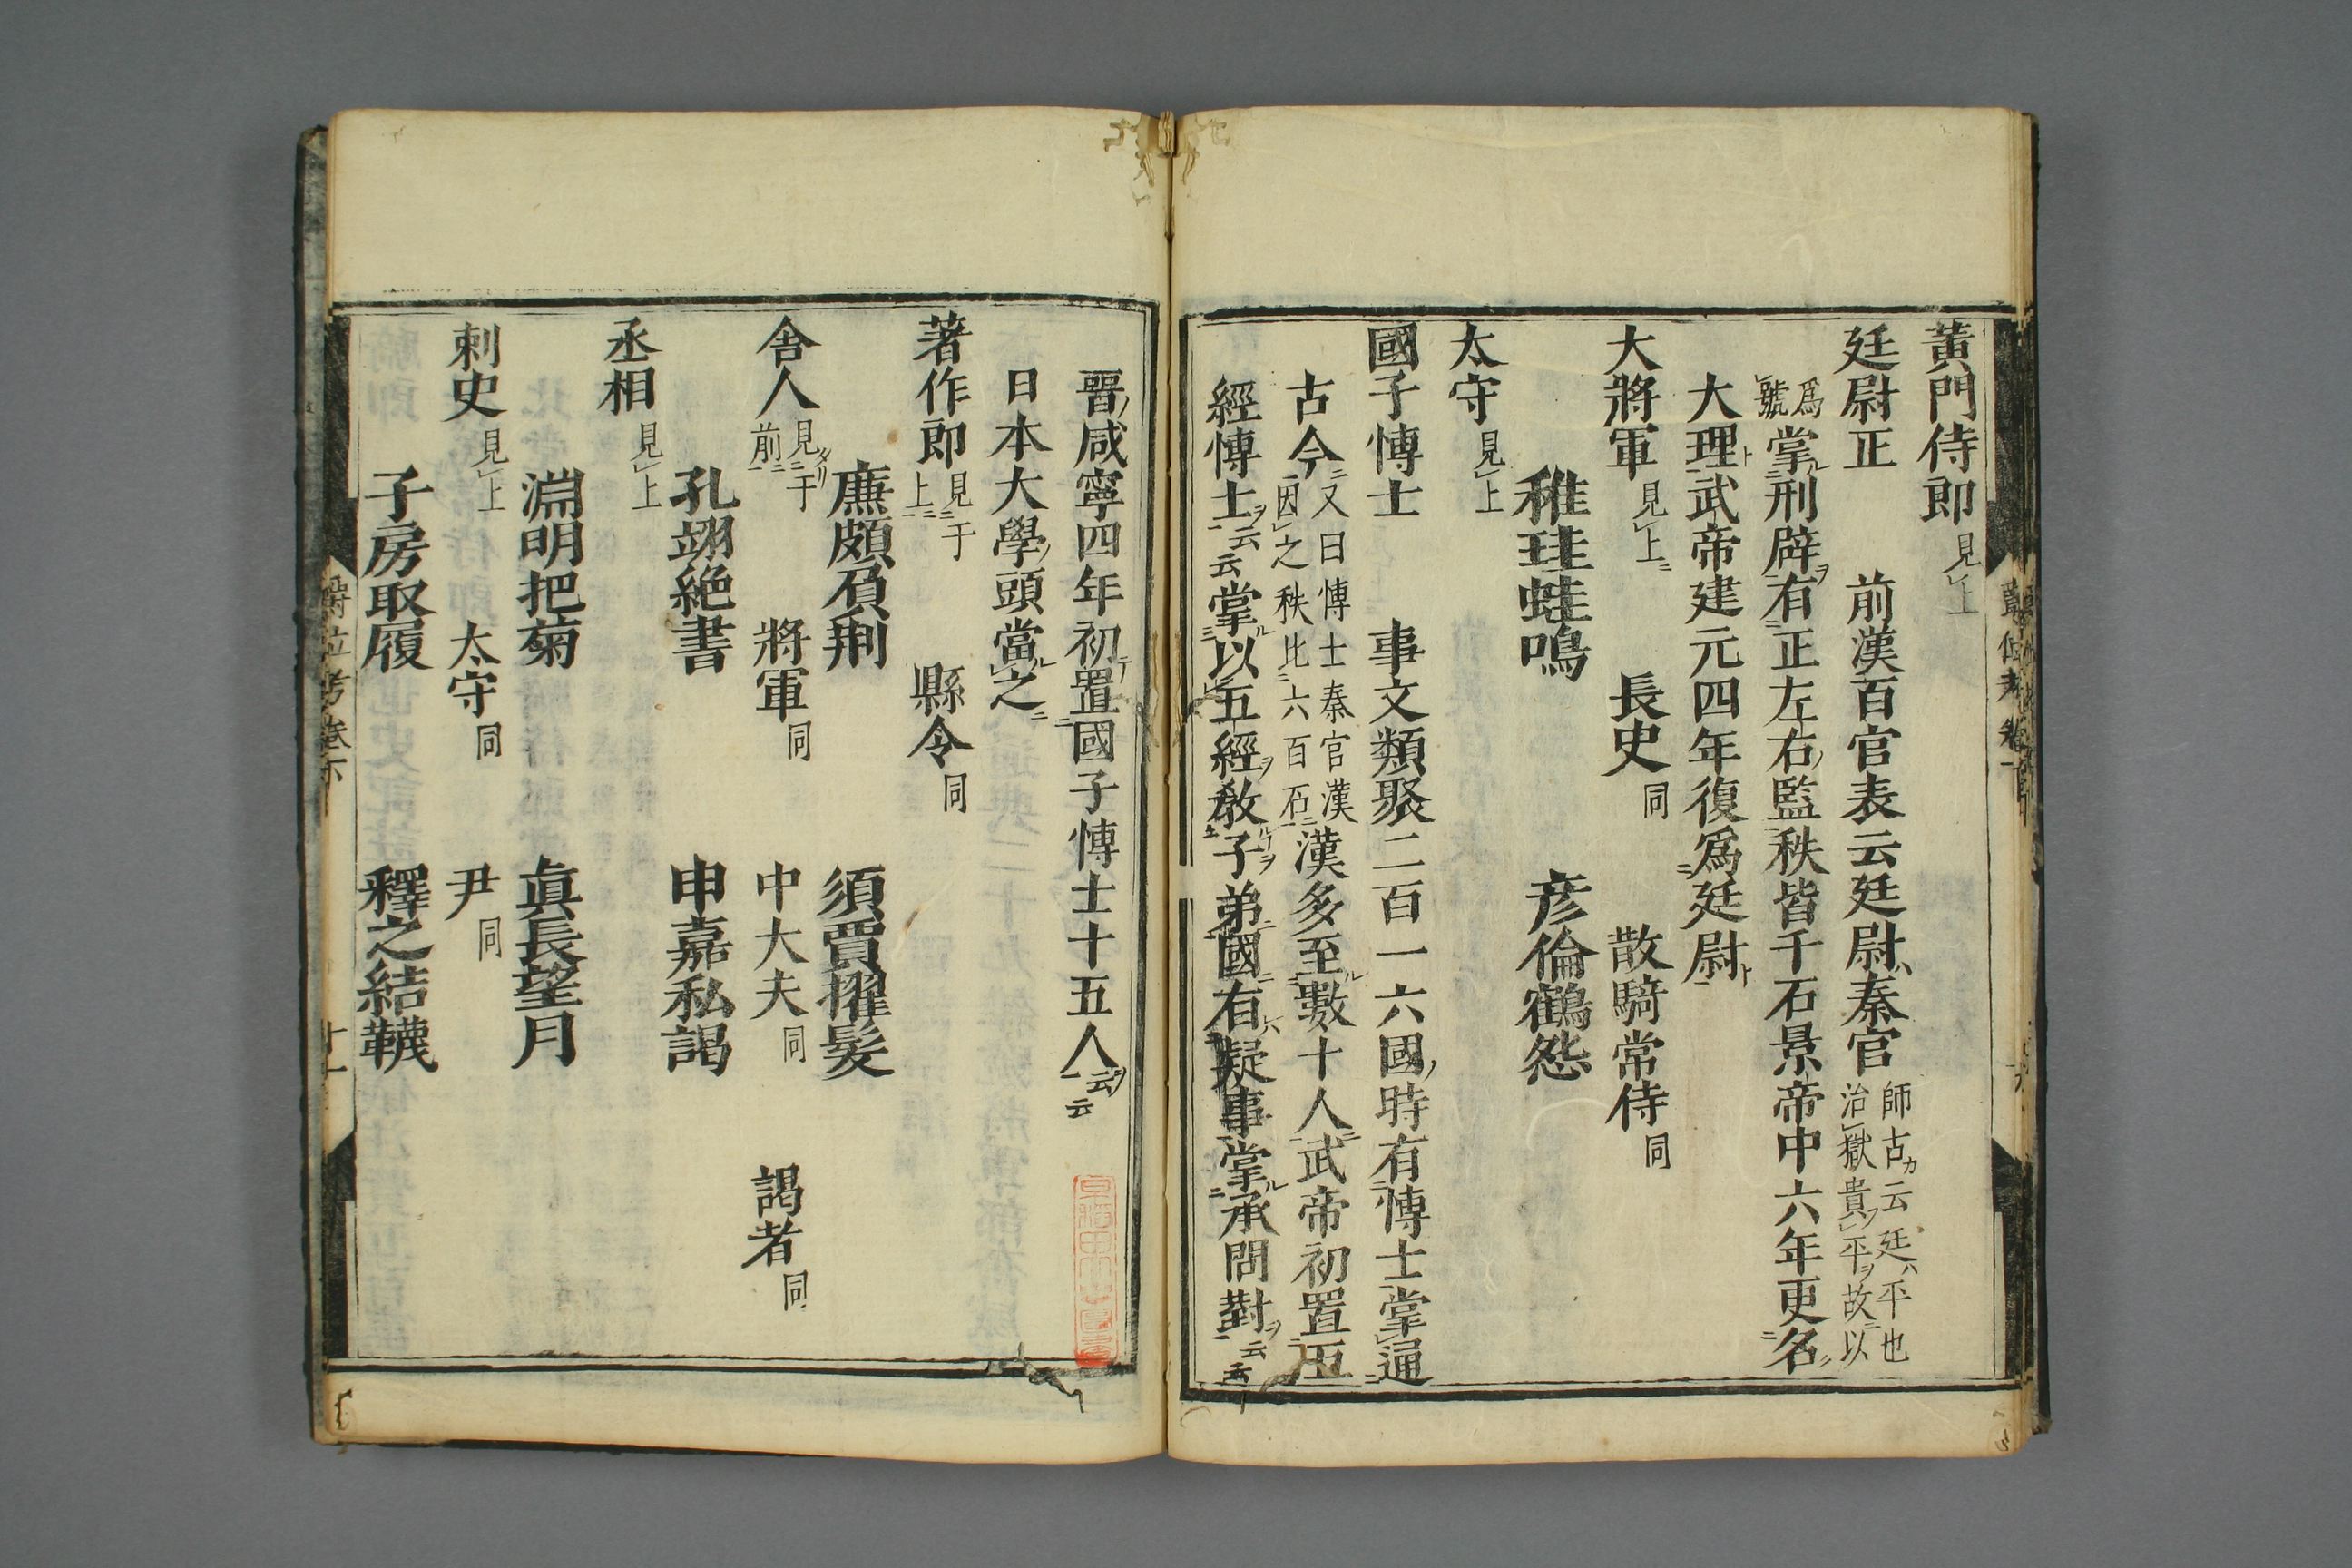 黄門侍郎見上
廷尉正　前漢百官表云廷尉ハ秦官師古カ云廷ハ平也治獄貴平ヲ故以
爲號掌刑辟ヲ有正左右ノ監秩皆千石景帝中六年更名
大理ト武帝建元四年復爲廷尉ト
大將軍見上　長史同　散騎常侍同
稚珪蛙鳴　彦倫鶴怨
太守見上
國子博士　事文類聚二百一六國ノ時有博士掌通
古今又曰博士秦官漢因之秩比六百石漢多至數十人武帝初置五
經博士ヲ云云掌以五經ヲ敎子弟國有疑事掌承問對ヲ云云
晋ノ咸寧四年初テ置國子博士十五人ヲ云云
日本大學ノ頭當之
著作郎見于上　縣令同
廉頗負荊　須賈擢髪
舍人見于前　將軍同　中大夫同　謁者同
孔翊絶書　申嘉私謁
丞相見上
淵明把菊　眞長望月
刺史見上　太守同　尹同
子房取履　釋之結韈
爵位考卷下
十一